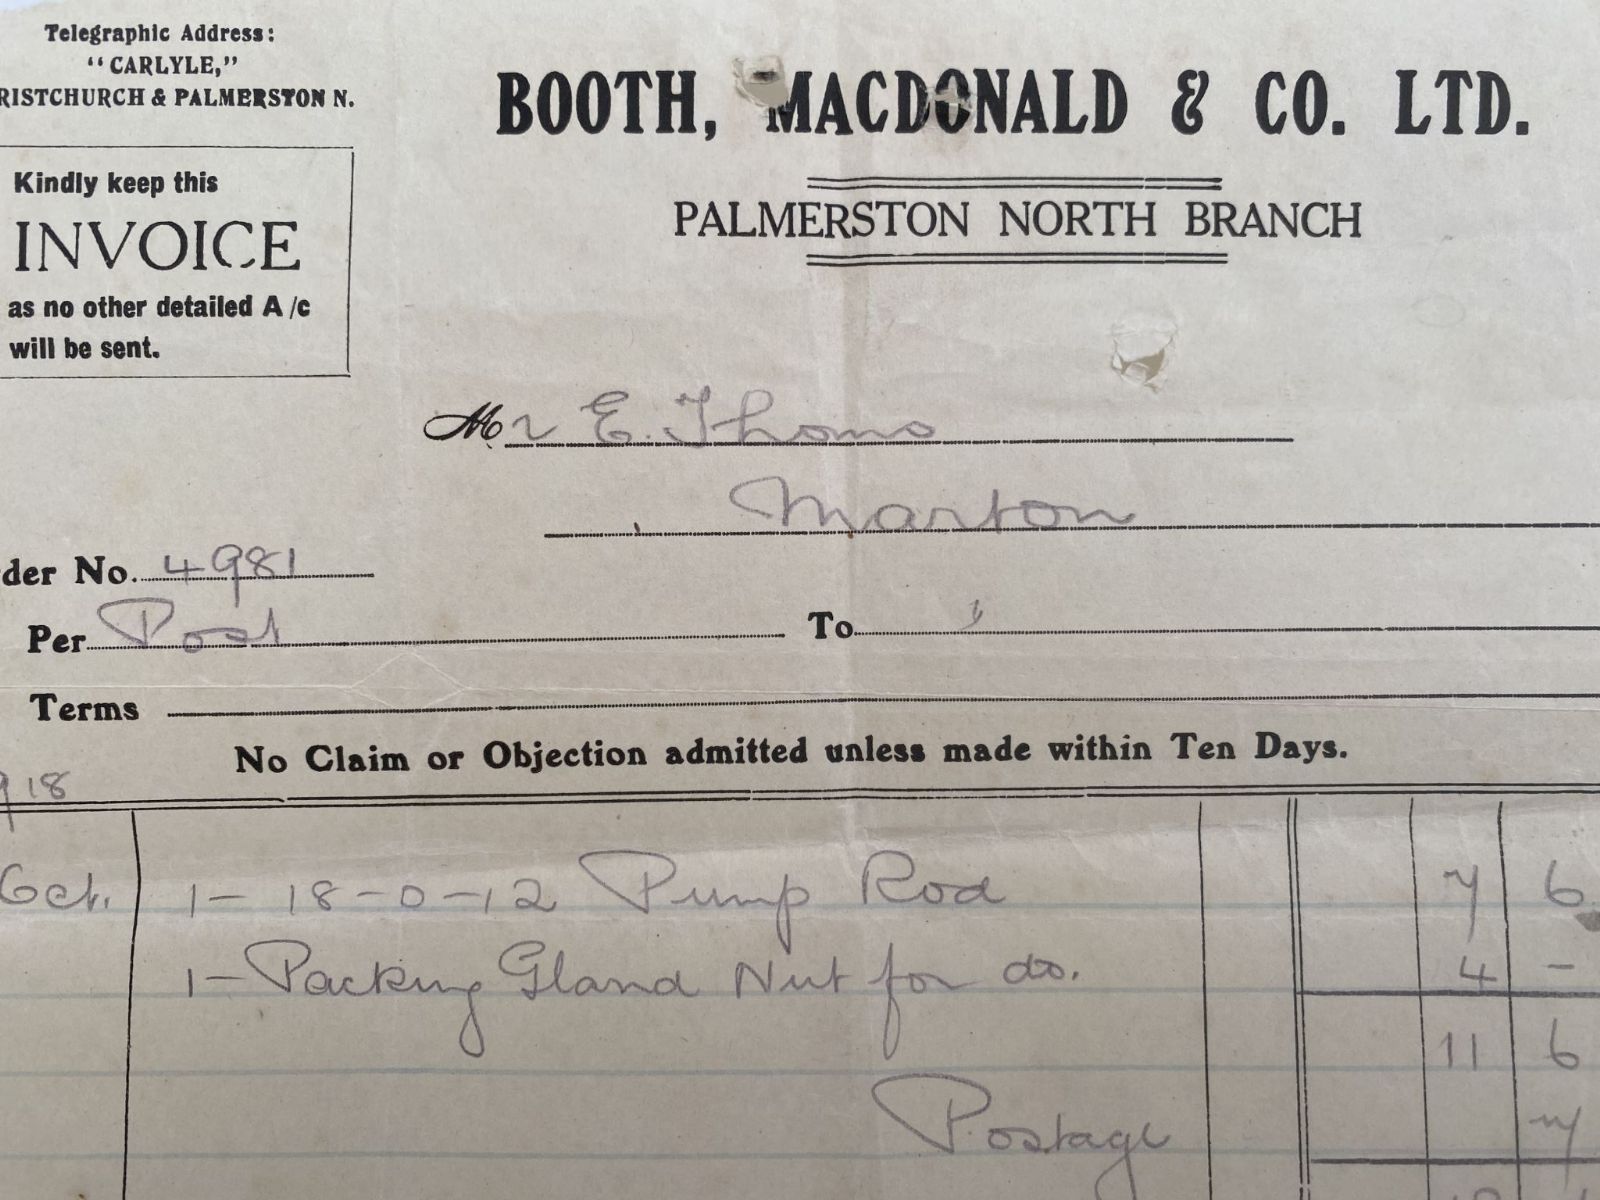 Telegraphic Address:
"CARLYLE,"
RISTCHURCH & PALMERSTON N.
BOOTH, MACDONALD & CO. LTD.
Kindly keep this
INVOICE
as no other detailed A/c
will be sent.
PALMERSTON NORTH BRANCH
Mr E. Thoms
Marton
der No. 4981
Per Post To
Terms
No Claim or Objection admitted unless made within Ten Days.
918
Oct. 1- 18-0-12 Pump Rod 7 6
1- Packing Gland Nut for do. 4 -
11 6
Postage 7